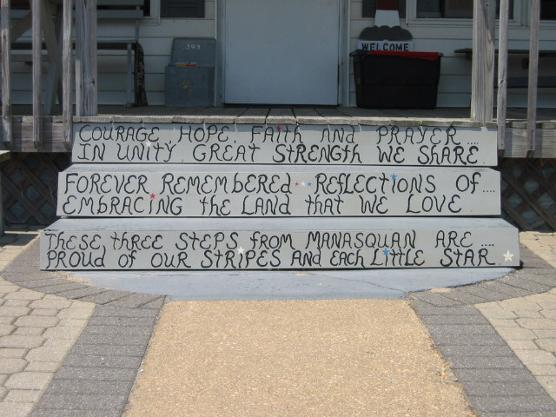 393
WELCOME
COURAGE, HOPE, FAith AND PRAYER....
IN UNITY GREAT STRENGth WE SHARE
FOREVER REMEMBERED REFLECTIONS OF....
EMBRACING the LAND thAT WE LOVE
These three STEPS FROM MANASQUAN ARE....
PROUD OF OUR STRIPES AND EACh LIttLE STAR